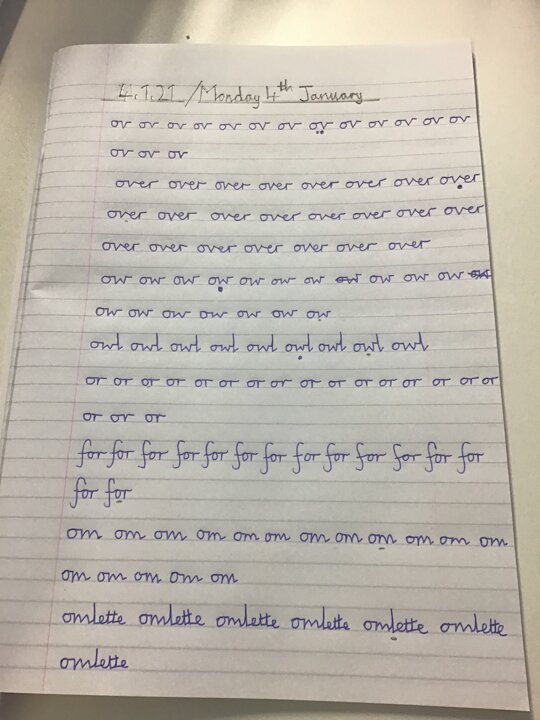 4.1.21 / Monday 4th January
ov ov ov ov ov ov ov ov ov ov ov ov ov
ov ov ov
over over over over over over over over
over over over over over over over over
over over over over over over over
ow ow ow ow ow ow ow ow ow ow ow ow
ow ow ow ow ow ow ow
owl owl owl owl owl owl owl owl owl
or or or or or or or or or or or or or or or
or or or
for for for for for for for for for for for for for
for for
om om om om om om om om om om om om
om om om om om
omlette omlette omlette omlette omlette omlette
omlette